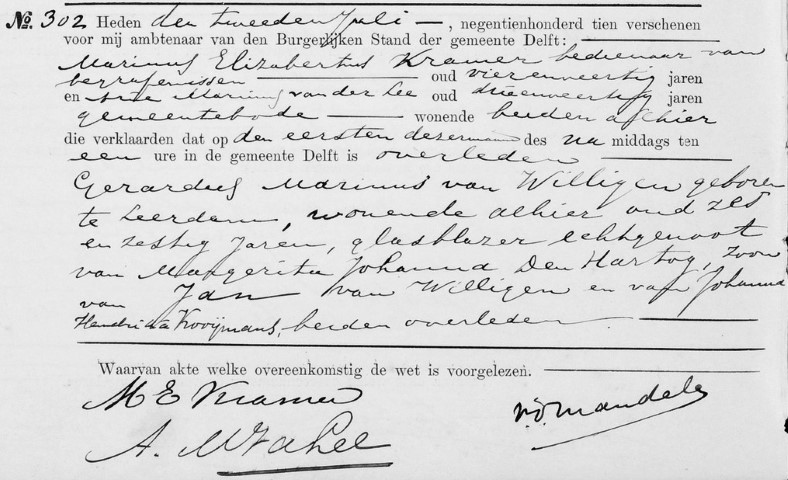 No. 302 Heden den tweeden Juli —, negentienhonderd tien verschenen
voor mij ambtenaar van den Burgerlijken Stand der gemeente Delft:
Marinus Elizabertus Kramer bedienaar van
begrafenissen oud vierenveertig jaren
en Marinus van der Lee oud drieenveertig jaren
gemeentebode wonende beiden alhier
die verklaarden dat op den eersten dezer maand des na middags ten
een ure in de gemeente Delft is overleden
Gerardus Marinus van Willigen geboren
te Leerdam, wonende alhier oud zes
en zestig Jaren, glasblazer echtgenoot
van Margerita Johanna Den Hartog, zoon
van Jan van Willigen en van Johanna
Hendrika Kooijmans, beiden overleden
Waarvan akte welke overeenkomstig de wet is voorgelezen.
M E Kramer
A. M van der Lee